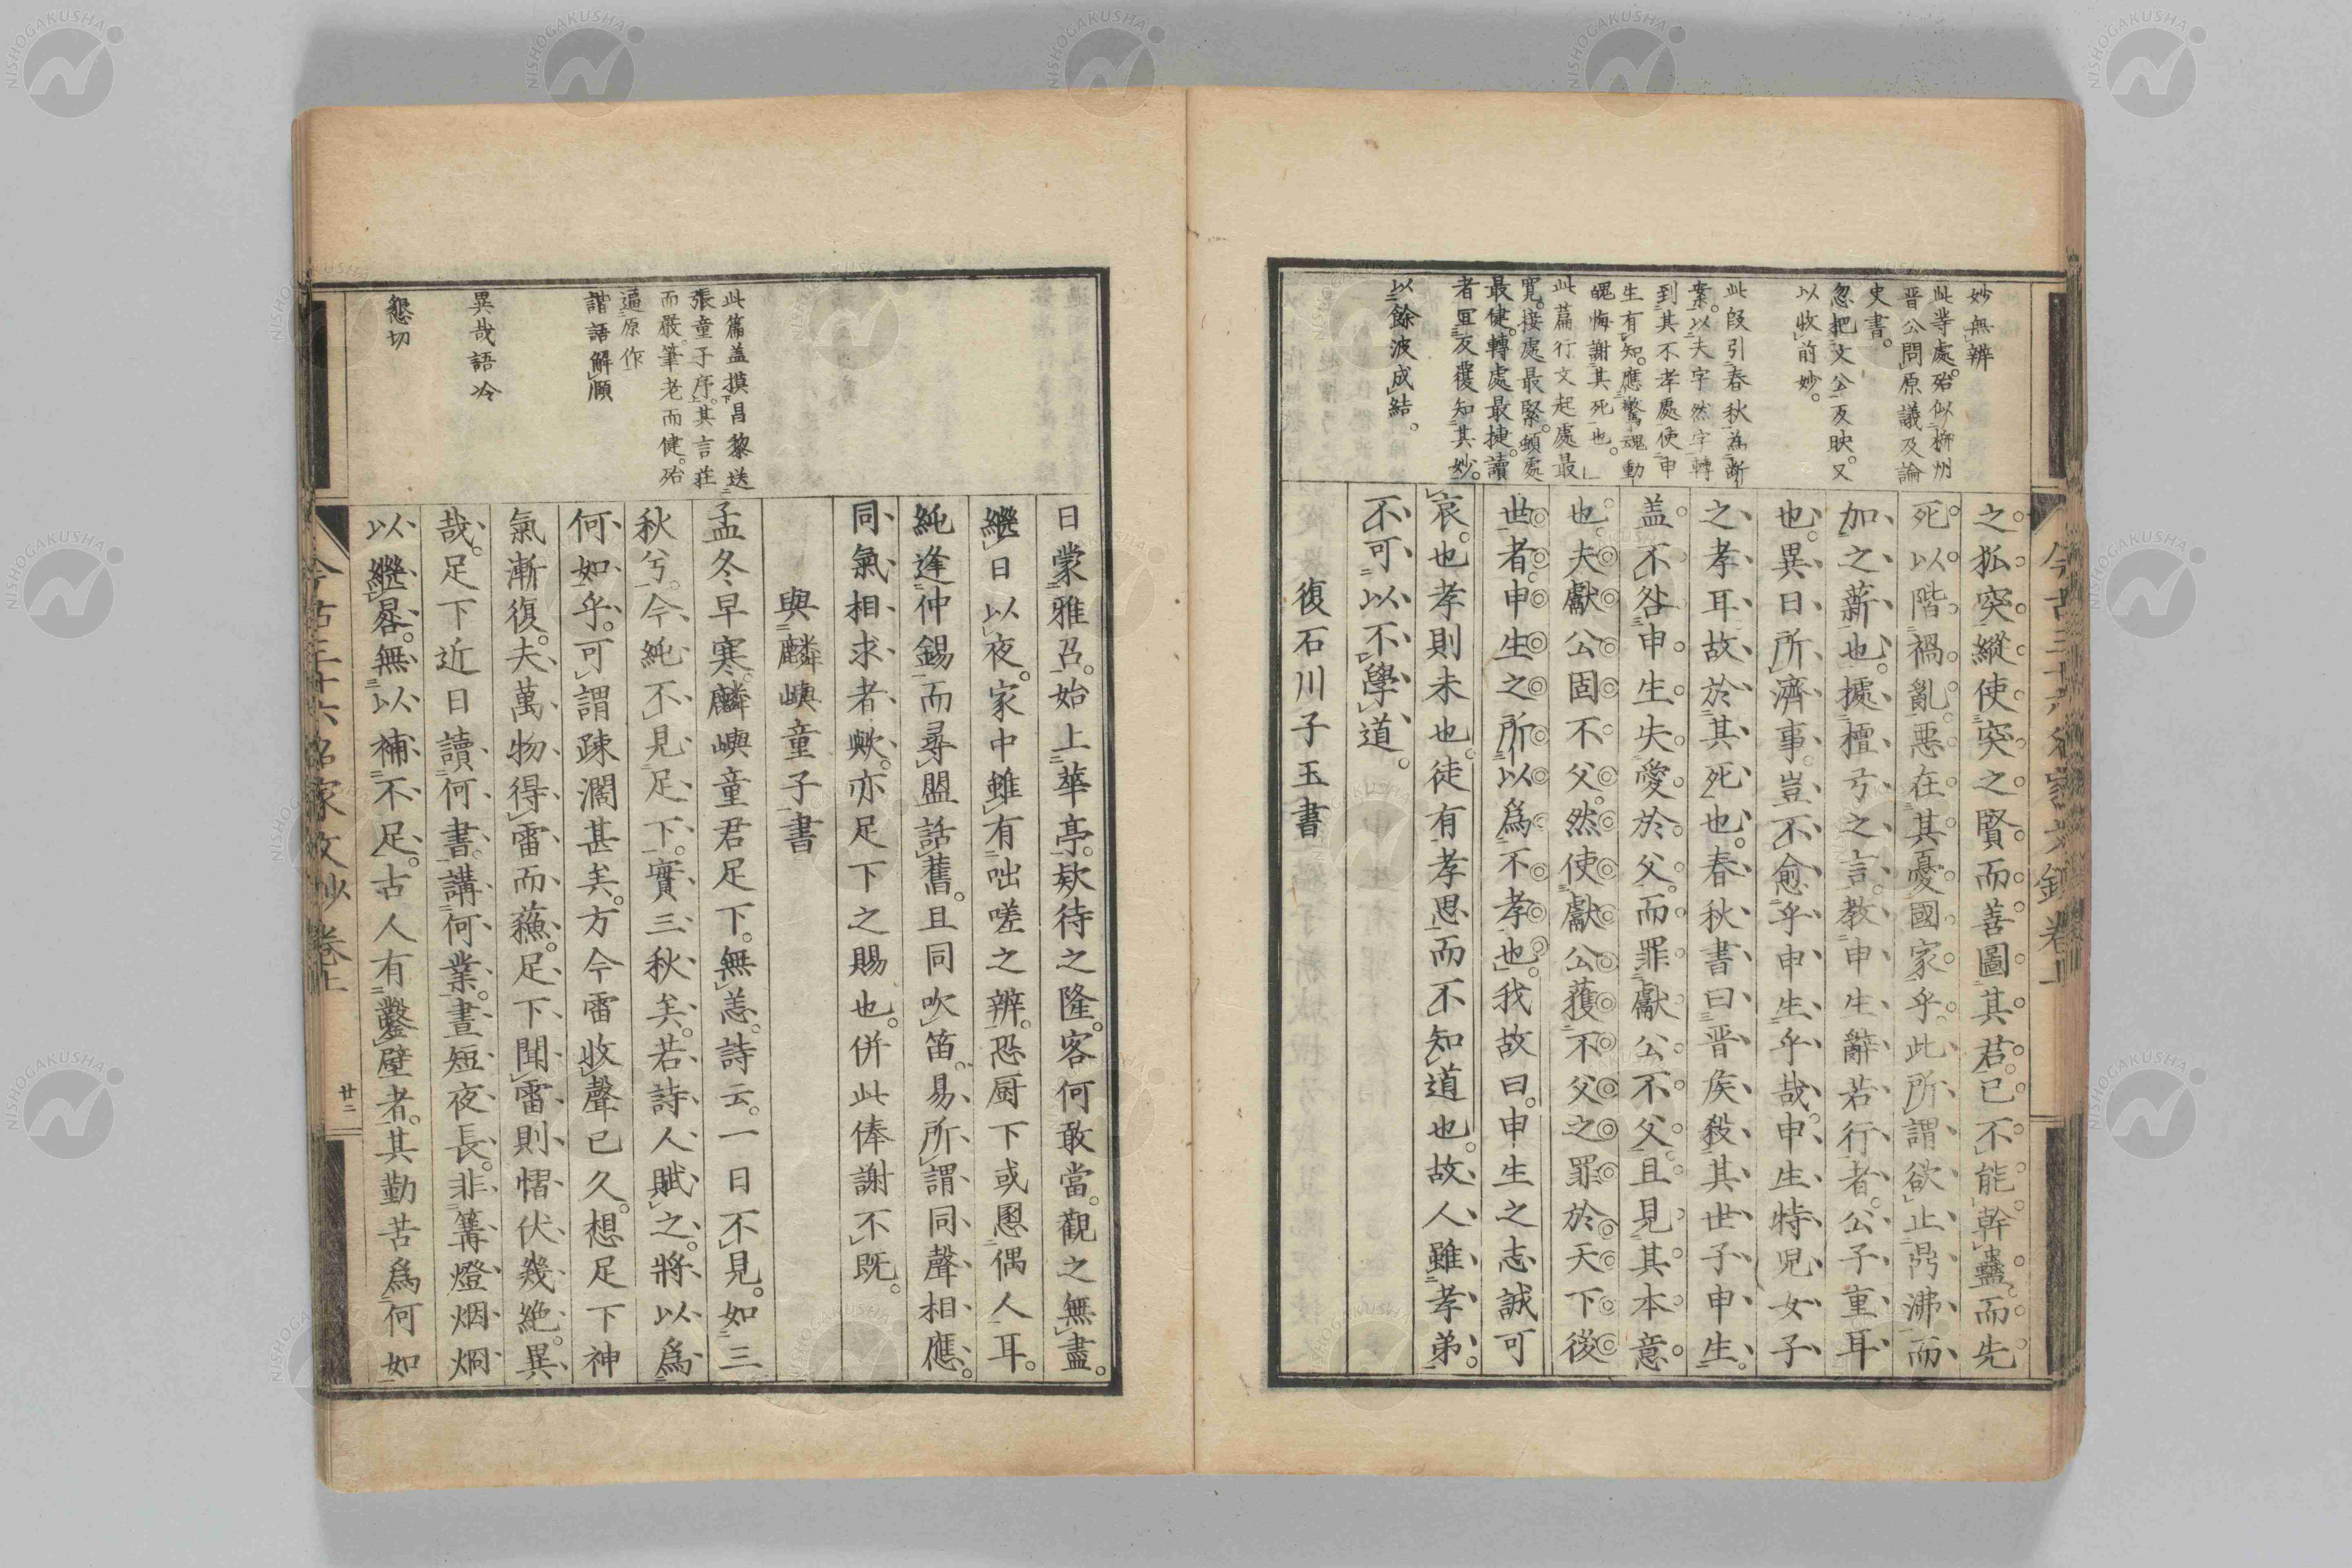 妙無辨
此等處殆似柳州
晋公問原議及論
史書。
忽把文公反映。又
以收前妙。
此段引春秋為断
案。以夫字然字轉
到其不孝處使申
生有知。應驚魂動
魄悔謝其死也。
此篇行文起處最
寛。接處最緊。頓處
最健。轉處最捷。讀
者宜反覆知其妙。
以餘波成結。
之狐突。縱使突之賢。而善圖其君。已不能幹蠱。而先
死。以階禍亂。惡在其憂國家乎。此所謂欲止鼎沸而
加之薪也。據檀弓之言。教申生辭若行者。公子重耳
也。異日所濟事。豈不愈乎申生乎哉。申生特児女子
之孝耳。故於其死也。春秋書曰。晋矦殺其世子申生。
盖不咎申生失愛於父。而罪獻公不父。且見其本意
也。夫獻公固不父。然使獻公獲不父之罪於天下後
世者。申生之所以爲不孝也。我故曰。申生之志誠可
哀也。孝則未也。徒有孝思而不知道也。故人雖孝弟。
不可以不學道。
復石川子玉書
今古三十六名家文鈔 卷上
日蒙雅召。始上華亭。欵待之隆。客何敢當。觀之無盡。
繼日以夜。家中雖有咄嗟之辨。恐厨下或慁偶人耳。
純逢仲錫而尋盟話舊。且同吹笛。易所謂同聲相應。
同氣相求者歟。亦足下之賜也。併此俸謝不既。
與麟嶼童子書
孟冬早寒。麟嶼童君足下。無恙。詩云。一日不見。如三
秋兮。今純不見足下。實三秋矣。若詩人賦之。將以爲
何如乎。可謂疎濶甚矣。方今雷收聲已久。想足下神
氣漸復。夫萬物得雷而蘓。足下聞雷則慴伏幾絶。異
哉。足下近日讀何書。講何業。晝短夜長。非篝燈烟烱
以繼晷。無以補不足。古人有鑿壁者。其勤苦爲何如
此篇盖摸昌黎送
張童子序。其言莊
而嚴。筆老而健。殆
逼原作
諧語解頤
異哉語冷
懇切
今古三十六名家文鈔 卷上
廿二
NISHOGAKUSHA